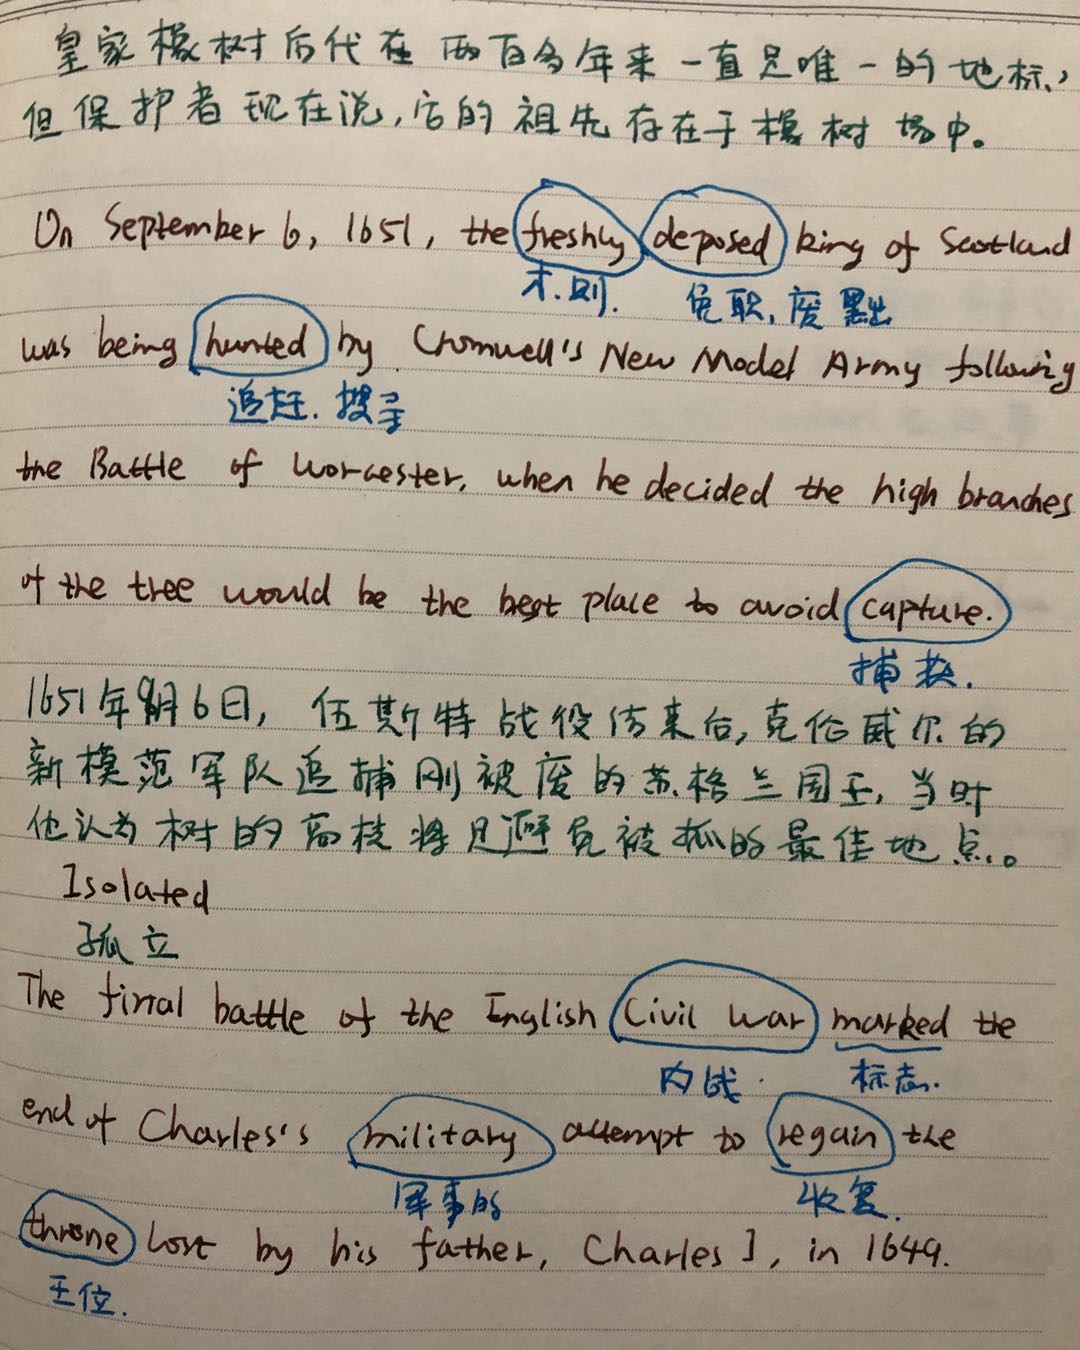 皇家橡树后代在两百多年来一直是唯一的地标,
但保护者现在说,它的祖先存在于橡树场中。
On September 6, 1651, the freshly deposed king of Scotland
才.刚. 免职,废黜
was being hunted by Cromwell's New Model Army following
追赶. 搜寻
the Battle of Worcester, when he decided the high branches
of the tree would be the best place to avoid capture.
捕获.
1651年9月6日, 伍斯特战役结束后,克伦威尔的
新模范军队追捕刚被废的苏格兰国王,当时
他认为树的高枝将是避免被抓的最佳地点。
Isolated
孤立
The final battle of the English Civil War marked the
内战. 标志.
end of Charles's military attempt to regain the
军事的 收复.
throne lost by his father, Charles I, in 1649.
王位.